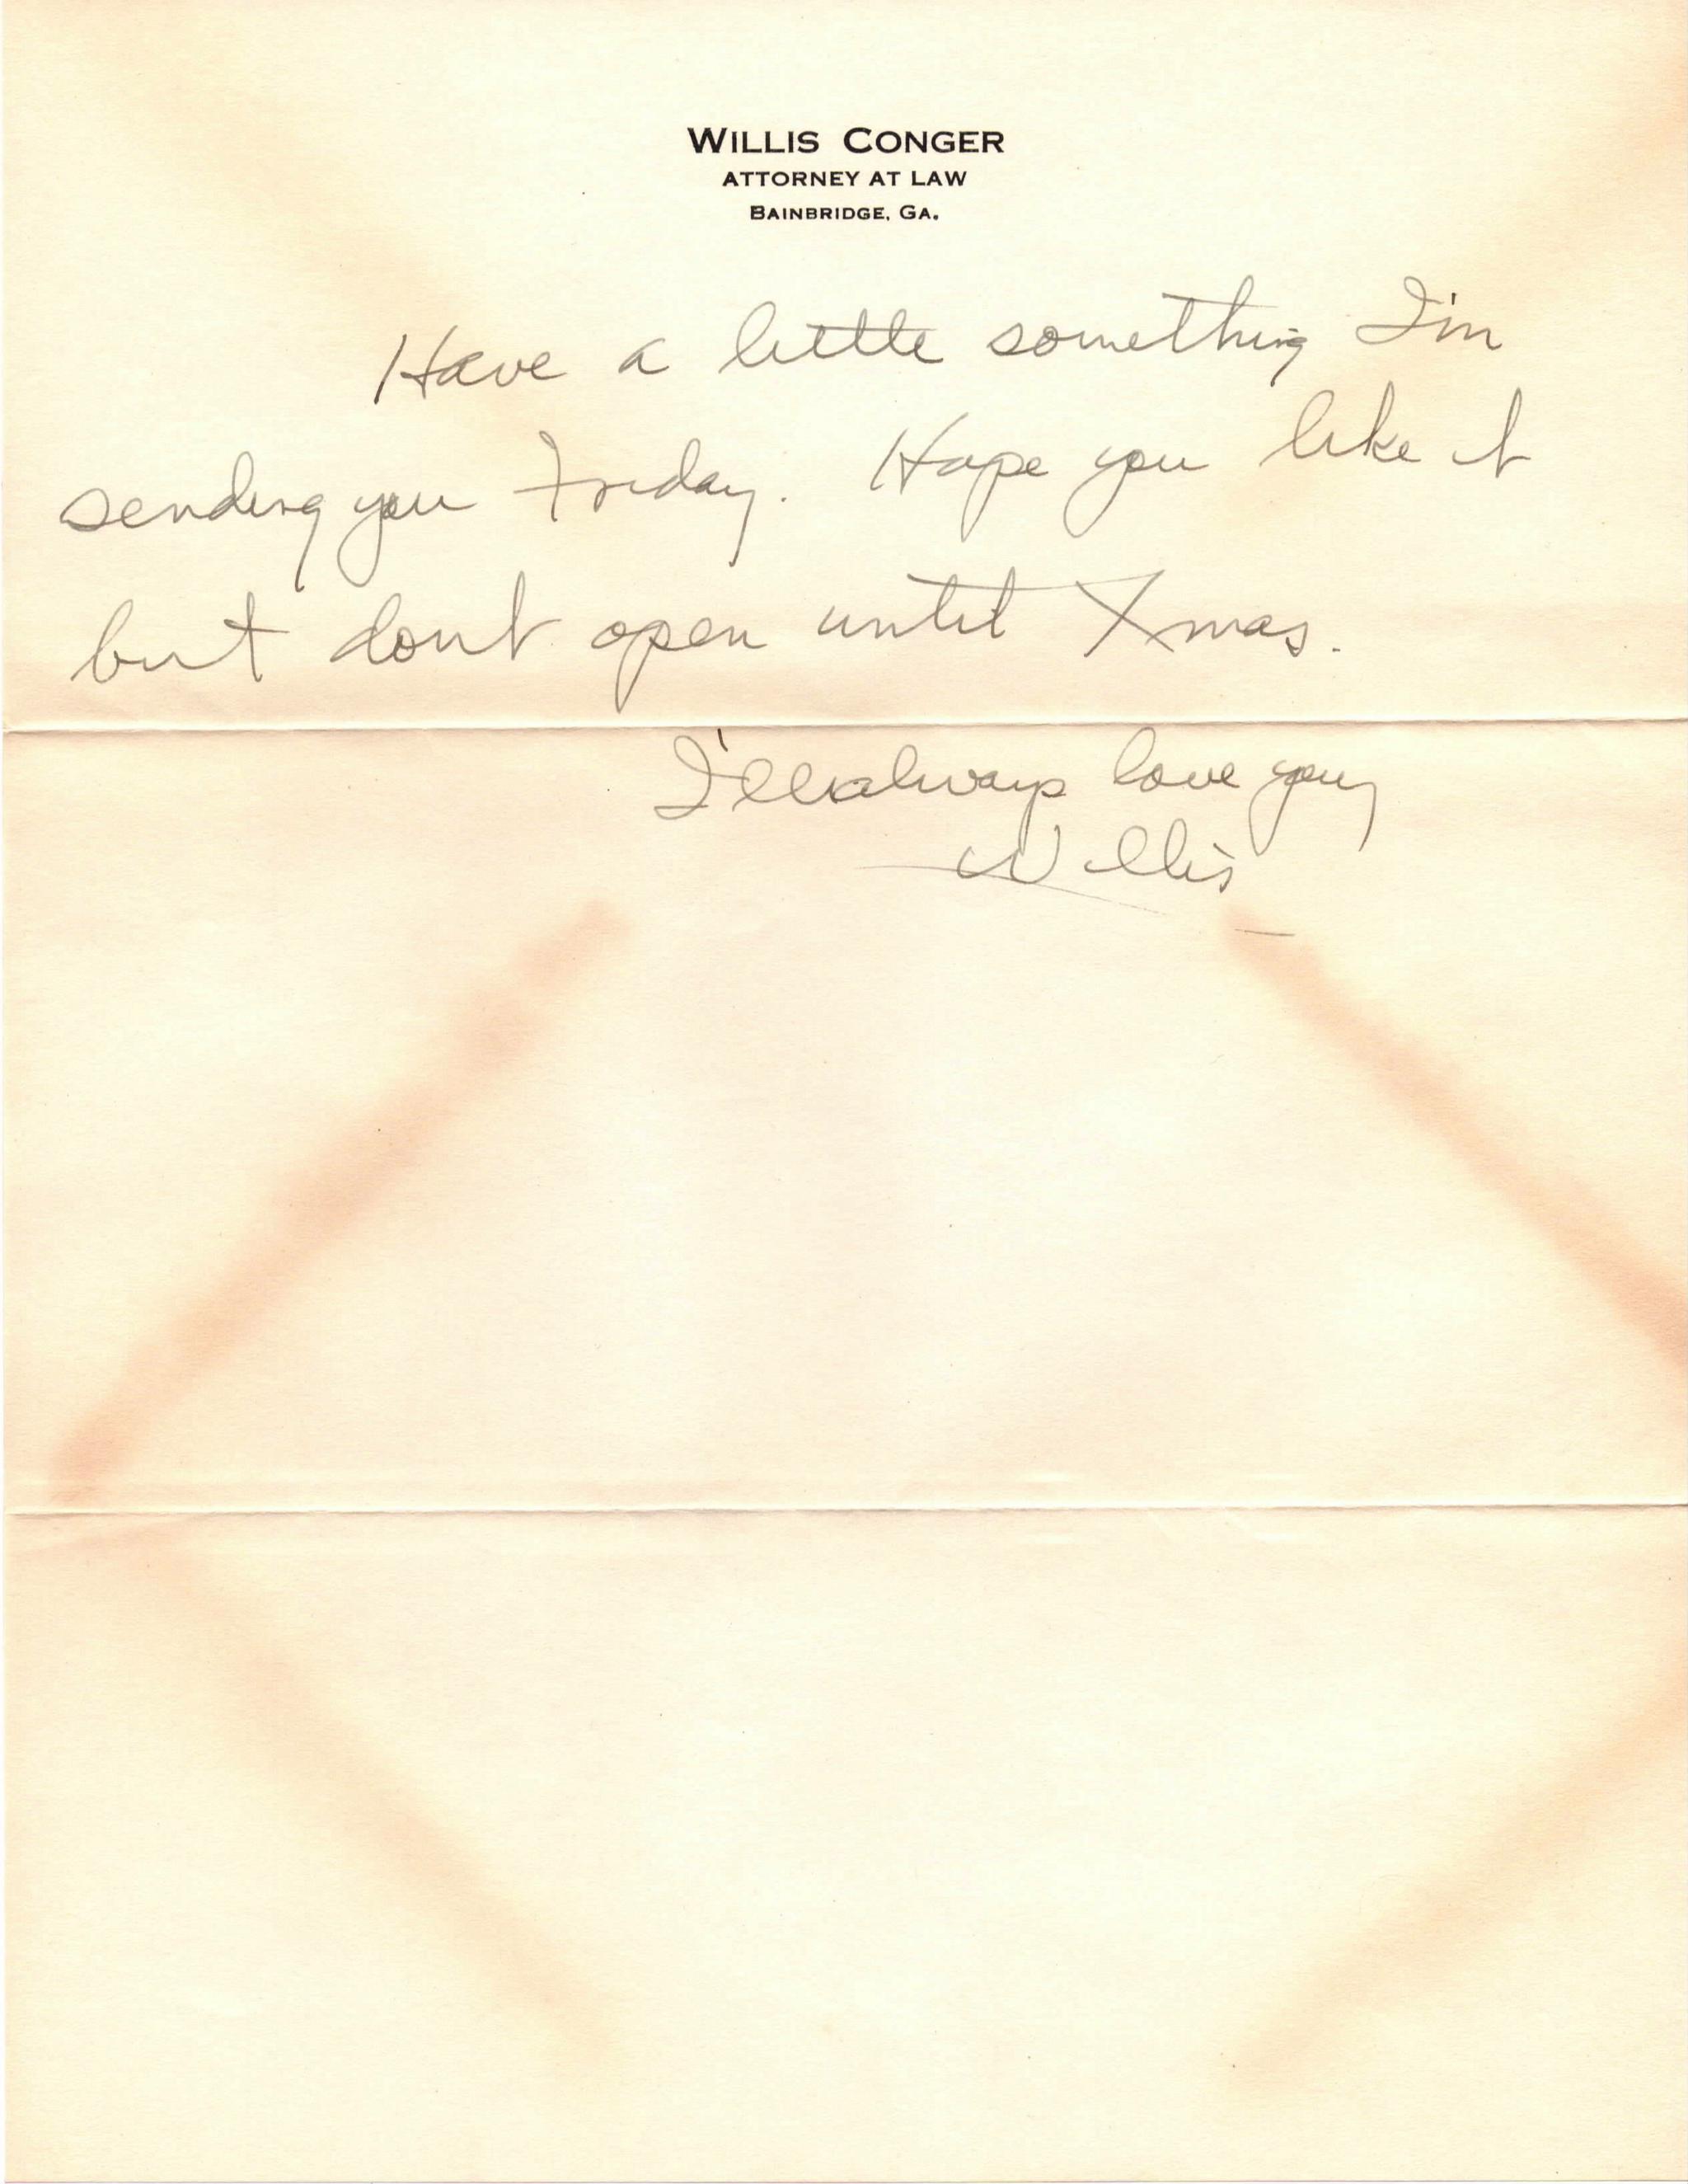 WILLIS CONGER
ATTORNEY AT LAW
BAINBRIDGE, GA.
Have a little something I'm
sending you Friday. Hope you like it
but dont open until Xmas.
I'll always love you,
Willis